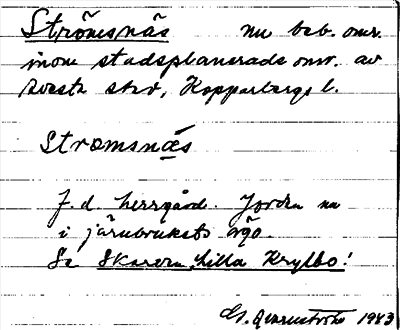 Strömsnäs nu beb. omr.
inom stadsplanerade omr. av
Avesta stad, Kopparbergs l.
Stromsnäs
f.d. herrgård. Jorden nu
i järnbrukets ägo.
Se Skaren, Lilla Krylbo!
1983